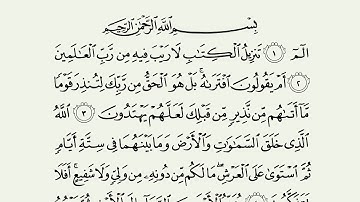 بِسْمِ اللَّهِ الرَّحْمَٰنِ الرَّحِيمِ
الٓمٓ ﴿١﴾ تَنزِيلُ الْكِتَابِ لَا رَيْبَ فِيهِ مِن رَّبِّ الْعَالَمِينَ
﴿٢﴾ أَمْ يَقُولُونَ افْتَرَاهُ ۚ بَلْ هُوَ الْحَقُّ مِن رَّبِّكَ لِتُنذِرَ قَوْمًا
مَّا أَتَاهُم مِّن نَّذِيرٍ مِّن قَبْلِكَ لَعَلَّهُمْ يَهْتَدُونَ ﴿٣﴾ اللَّهُ
الَّذِي خَلَقَ السَّمَاوَاتِ وَالْأَرْضَ وَمَا بَيْنَهُمَا فِي سِتَّةِ أَيَّامٍ
ثُمَّ اسْتَوَىٰ عَلَى الْعَرْشِ ۖ مَا لَكُم مِّن دُونِهِ مِن وَلِيٍّ وَلَا شَفِيعٍ ۚ أَفَلَا